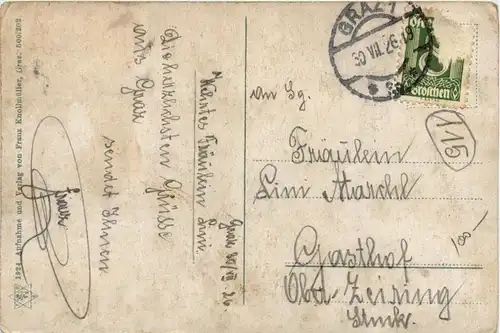 1924 Aufnahme und Verlag von Franz Knollmüller, Graz. 500/202
Graz 30/VII. 26.
Wertes Fräulein
Die herzlichsten Grüsse
aus Graz
sendet Ihnen
Franz
GRAZ 1
Groschen
An Sg.
Fräulein
Marchl
Gasthof
Obd. Zeiring
115